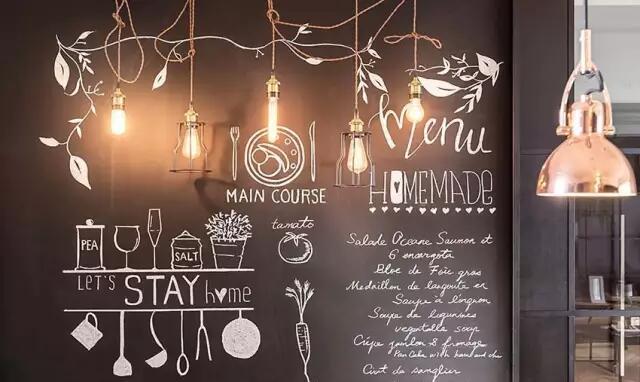 Menu
MAIN COURSE
HOMEMADE
PEA
SALT
LET'S STAY home
tomato
Salade Oceane Saumon et
6 encargots
Bloc de Foie gras
Medaillon de langoute en
Soupe à l'ongnon
Soupe de legumines
vegetable soup
Crêpe jambon & fromage
Pan Cake with ham and che
Civet de sanglier